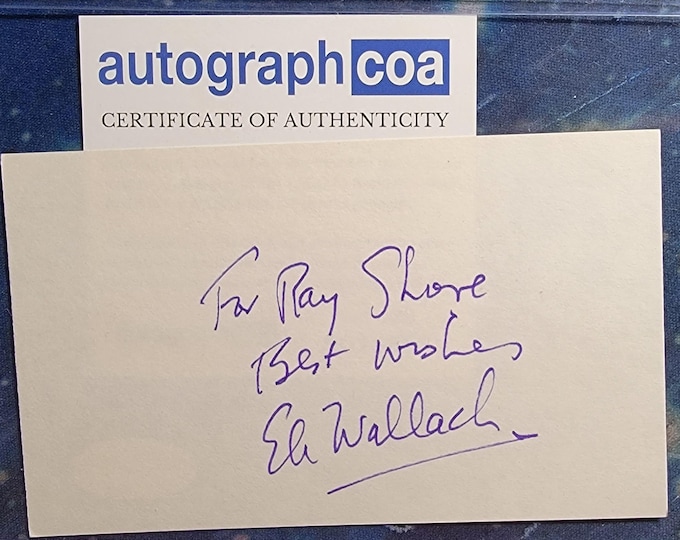 autographcoa
CERTIFICATE OF AUTHENTICITY
For Ray Shore
Best wishes
Eli Wallach